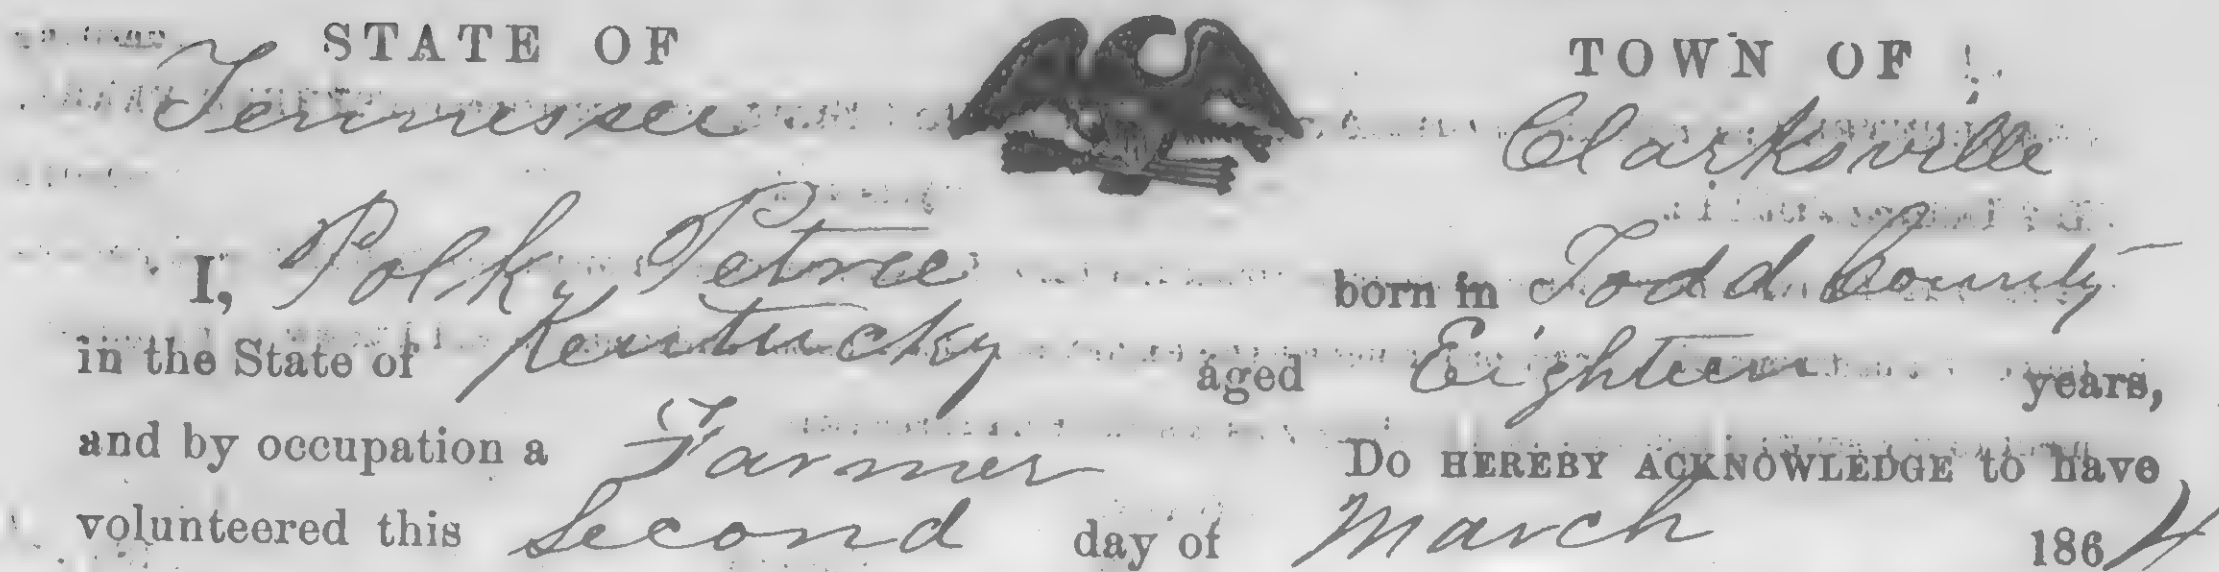 STATE OF TOWN OF
Tennessee Clarksville
I, Polk, Petree born in Todd County
in the State of Kentucky aged Eighteen years,
and by occupation a Farmer Do HEREBY ACKNOWLEDGE to have
volunteered this Second day of March 1864